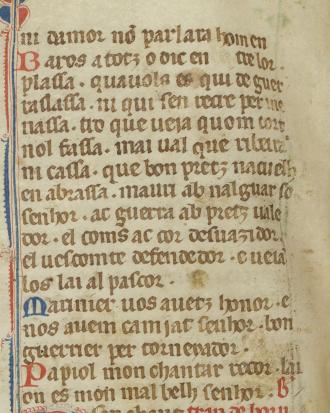 ni damor nō parlara hom en
Baros a totz o dic en de lor .
plassa . quauols es qui de guer
ra slassa . ni qui sen recre per me
nassa . tro que ueia quom tort
nol fassa . mai ual que ribeira
ni cassa . que bon pretz nacuelh
en abrassa . mauri ab nalguar so
senhor . ac guerra ab pretz uale
dor . el coms ac cor desuazidor
el uescomte defendedor . e ueia
los lai al pascor .
Marinier uos auetz honor . e
nos auem camjat senhor . bon
guerrier per tornerador .
Papiol mon chantar recor . lai
on es mon mal belh senhor . B